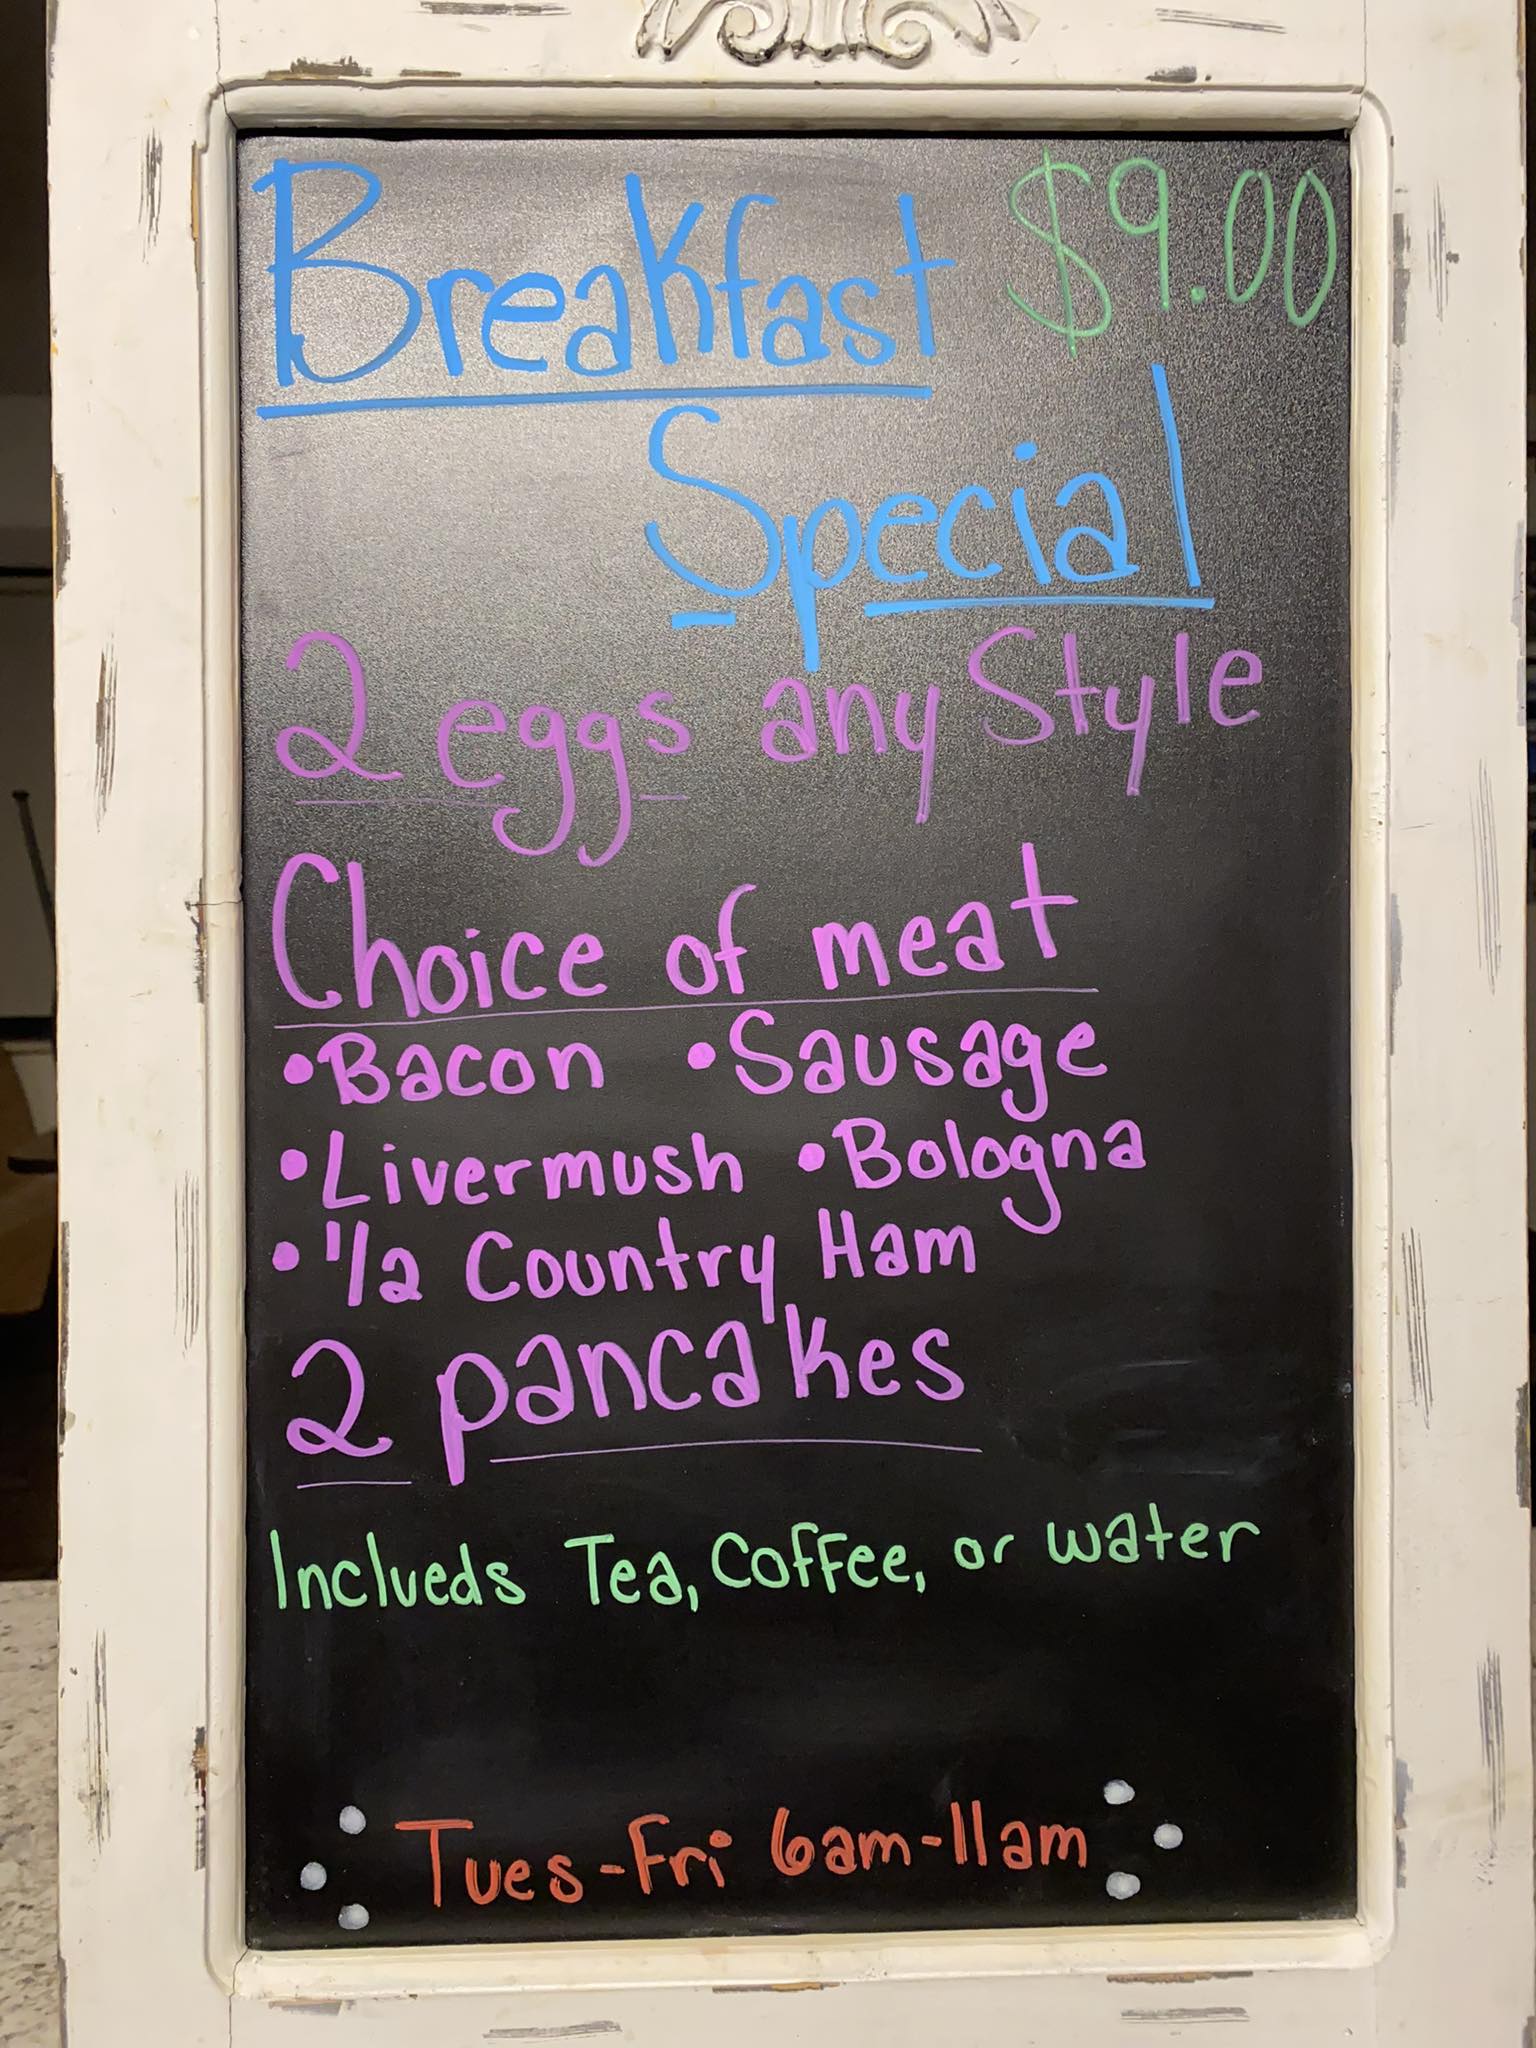 Breakfast $9.00
Special
2 eggs any Style
Choice of meat
• Bacon • Sausage
• Livermush • Bologna
• 1/2 Country Ham
2 pancakes
Inclueds Tea, Coffee, or water
Tues-Fri 6am-11am